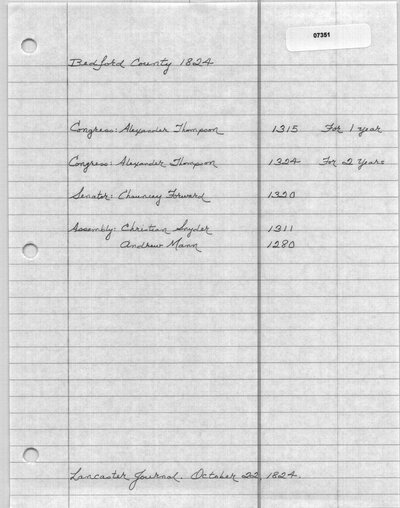 07351
Bedford County 1824
Congress: Alexander Thompson 1315 For 1 year
Congress: Alexander Thompson 1324 For 2 Years
Senator: Chauncey Forward 1320
Assembly: Christian Snyder 1311
Andrew Mann 1280
Lancaster Journal. October 22, 1824.